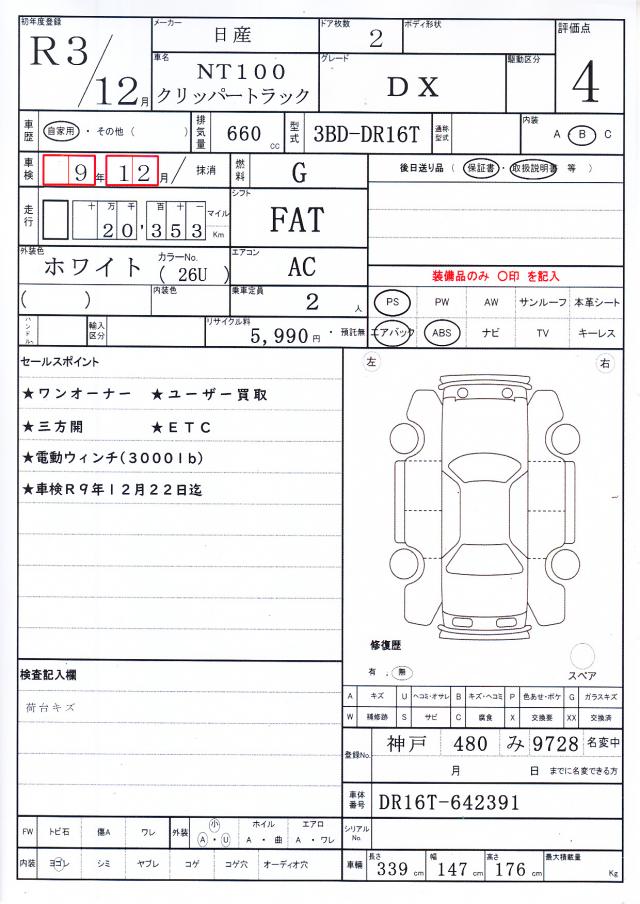 初年度登録 R3/12月 メーカー 日産 ドア枚数 2 ボディ形状 評価点 4
車名 NT100 クリッパートラック グレード DX 駆動区分
車歴 自家用・その他( ) 排気量 660cc 型式 3BD-DR16T 通称型式 内装 A・B C
車検 9年12月/ 抹消 燃料 G 後日送り品(保証書・取扱説明書 等)
走行 十万千百十一 20,353 マイル Km シフト FAT
外装色 ホワイト カラーNo. (26U) エアコン AC 装備品のみ 〇印 を記入
( ) 内装色 乗車定員 2人 PS PW AW サンルーフ 本革シート
ハンドル 輸入区分 リサイクル料 5,990円・預託無 エアバック ABS ナビ TV キーレス
セールスポイント 左 右
★ワンオーナー ★ユーザー買取
★三方開 ★ETC
★電動ウィンチ(3000lb)
★車検R9年12月22日迄
修復歴
有.無 スペア
検査記入欄
荷台キズ
A キズ U ヘコミ・オサレ B キズ・ヘコミ P 色あせ・ボケ G ガラスキズ
W 補修跡 S サビ C 腐食 X 交換要 XX 交換済
登録No. 神戸 480 み 9728 名変中
月 日 までに名変できる方
車体番号 DR16T-642391
FW トビ石 傷A ワレ 外装 小 A・U ホイル A・曲 エアロ A・ワレ シリアルNo.
内装 ヨゴレ シミ ヤブレ コゲ コゲ穴 オーディオ穴 車輛 長さ 339cm 幅 147cm 高さ 176cm 最大積載量 Kg